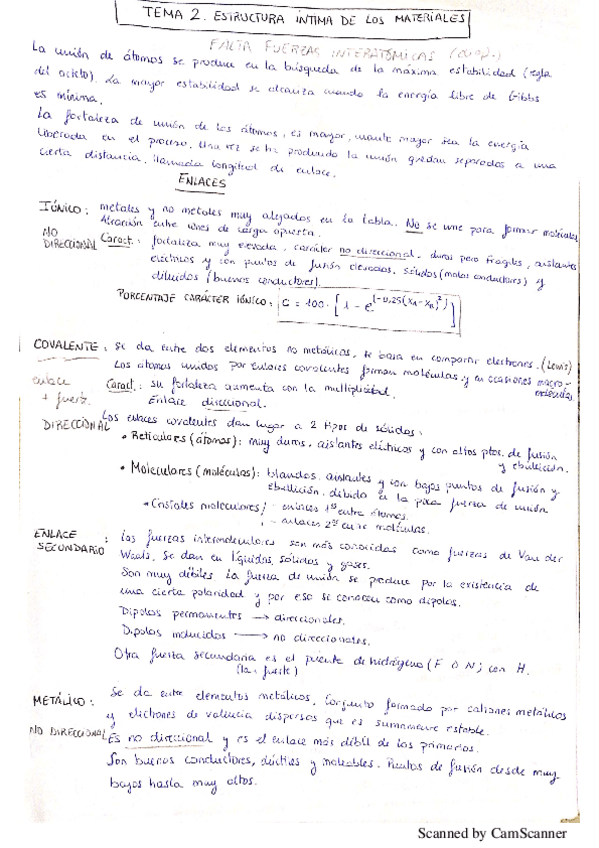 TEMA 2. ESTRUCTURA ÍNTIMA DE LOS MATERIALES
FALTA FUERZAS INTERATÓMICAS
La unión de átomos se produce en la búsqueda de la máxima estabilidad (regla
del octeto). La mayor estabilidad se alcanza cuando la energía libre de Gibbs
es mínima.
La fortaleza de unión de los átomos, es mayor, cuanto mayor sea la energía
liberada en el proceso. Una vez se ha producido la unión quedan separados a una
cierta distancia, llamada longitud de enlace.
ENLACES
IÓNICO: metales y no metales muy alejados en la tabla. No se une para formar moléculas
Atracción entre iones de carga opuesta.
NO DIRECCIONAL
Caract.: fortaleza muy elevada, carácter no direccional, duros pero frágiles, aislantes
eléctricos y con puntos de fusión elevados. Sólidos (malos conductores) y
diluidos (buenos conductores).
PORCENTAJE CARÁCTER IÓNICO: C = 100 · [1 - e^(-0,25(XA-XB)²)]
COVALENTE: se da entre dos elementos no metálicos, se basa en compartir electrones. (Lewis)
Los átomos unidos por enlaces covalentes forman moléculas, y en ocasiones macro-
moléculas
enlace
+ fuert.
Caract.: su fortaleza aumenta con la multiplicidad.
Enlace direccional.
DIRECCIONAL
Los enlaces covalentes dan lugar a 2 tipos de sólidos:
• Reticulares (átomos): muy duros, aislantes eléctricos y con altos ptos. de fusión
y ebullición.
• Moleculares (moléculas): blandos, aislantes y con bajos puntos de fusión y
ebullición, debido a la poca fuerza de unión
• Cristales moleculares: - enlaces 1º entre átomos.
- enlaces 2º entre moléculas.
ENLACE
SECUNDARIO: Las fuerzas intermoleculares son más conocidas como fuerzas de Van der
Waals, se dan en líquidos, sólidos y gases.
Son muy débiles. La fuerza de unión se produce por la existencia de
una cierta polaridad y por eso se conocen como dipolos.
Dipolos permanentes → direccionales.
Dipolos inducidos → no direccionales.
Otra fuerza secundaria es el puente de hidrógeno (F O N; con H.
(la + fuerte)
METÁLICO: Se da entre elementos metálicos. Conjunto formado por cationes metálicos
y electrones de valencia dispersos que es sumamente estable.
NO DIRECCIONAL
Es no direccional y es el enlace más débil de los primarios.
Son buenos conductores, dúctiles y maleables. Puntos de fusión desde muy
bajos hasta muy altos.
Scanned by CamScanner